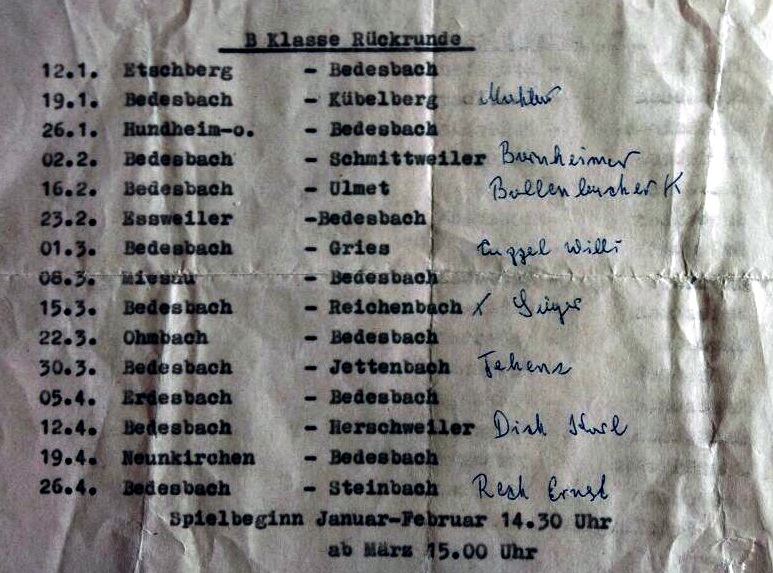 B Klasse Rückrunde
12.1. Etschberg - Bedesbach
19.1. Bedesbach - Kübelberg
26.1. Hundheim-o. - Bedesbach
02.2. Bedesbach - Schmittweiler Burnheimer
16.2. Bedesbach - Ulmet Bollenbacher K
23.2. Essweiler -Bedesbach
01.3. Bedesbach - Gries Willi
08.3. Miesau - Bedesbach
15.3. Bedesbach - Reichenbach X
22.3. Ohmbach - Bedesbach
30.3. Bedesbach - Jettenbach
05.4. Erdesbach - Bedesbach
12.4. Bedesbach - Herschweiler Dick Karl
19.4. Neunkirchen - Bedesbach
26.4. Bedesbach - Steinbach Resch Ernst
Spielbeginn Januar-Februar 14.30 Uhr
ab März 15.00 Uhr